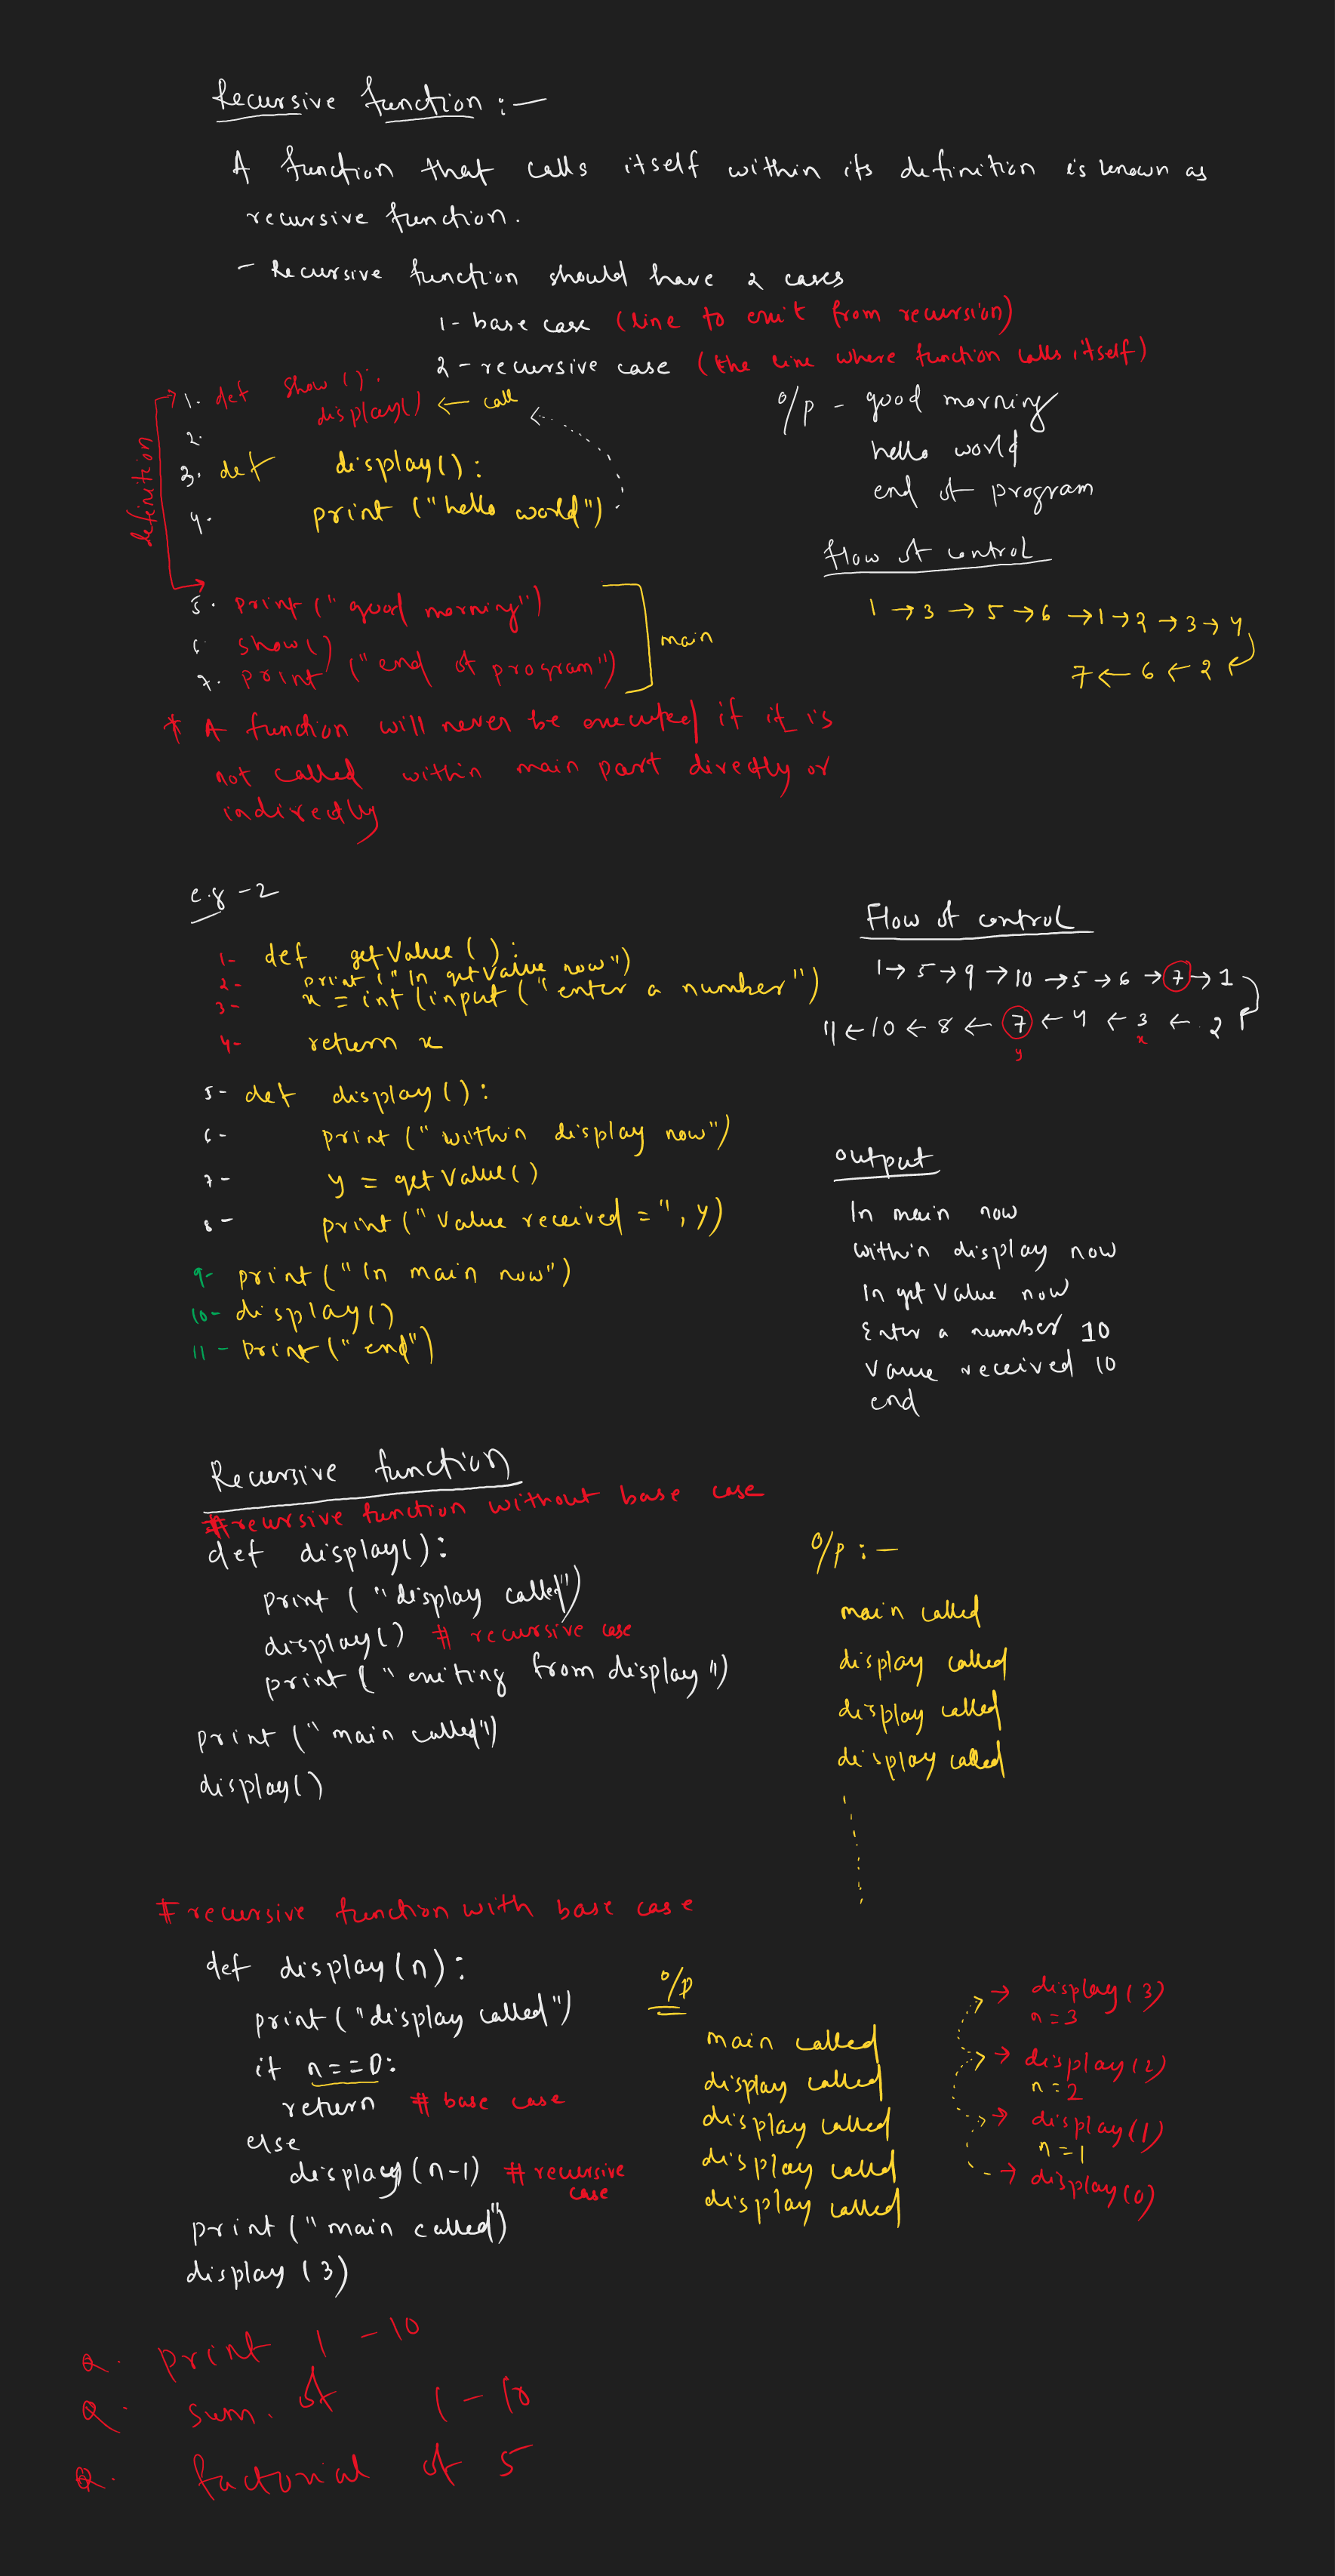 Recursive function :-
A function that calls itself within its definition is known as
recursive function.
- Recursive function should have 2 cases
1- base case (line to exit from recursion)
2- recursive case (the line where function calls itself)
definition
1. def show():
2. display() ← call
3. def display():
4. print ("hello world")
5. print ("good morning")
6. show()
7. print ("end of program")
main
o/p - good morning
hello world
end of program
flow of control
1 → 3 → 5 → 6 → 1 → 2 → 3 → 4
7 ← 6 ← 2
* A function will never be executed if it is
not called within main part directly or
indirectly
e.g -2
1- def getValue():
2- print ("In getValue now")
3- x = int (input ("enter a number")
4- return x
5- def display():
6- print ("within display now")
7- y = getValue()
8- print ("Value received =", y)
9- print ("In main now")
10- display()
11- print ("end")
Flow of control
1 → 5 → 9 → 10 → 5 → 6 → 7 → 1
11 ← 10 ← 8 ← 7 ← 4 ← 3 ← 2
y x
output
In main now
within display now
In getValue now
Enter a number 10
Value received 10
end
Recursive function
# recursive function without base case
def display():
print ("display called")
display() # recursive case
print ("exiting from display")
print ("main called")
display()
o/p :-
main called
display called
display called
display called
# recursive function with base case
def display(n):
print ("display called")
if n==0:
return # base case
else
display(n-1) # recursive
case
print ("main called")
display (3)
o/p
main called
display called
display called
display called
display called
→ display(3)
n=3
→ display(2)
n=2
→ display(1)
n=1
→ display(0)
Q. print 1 - 10
Q. sum. of 1 - 10
Q. factorial of 5